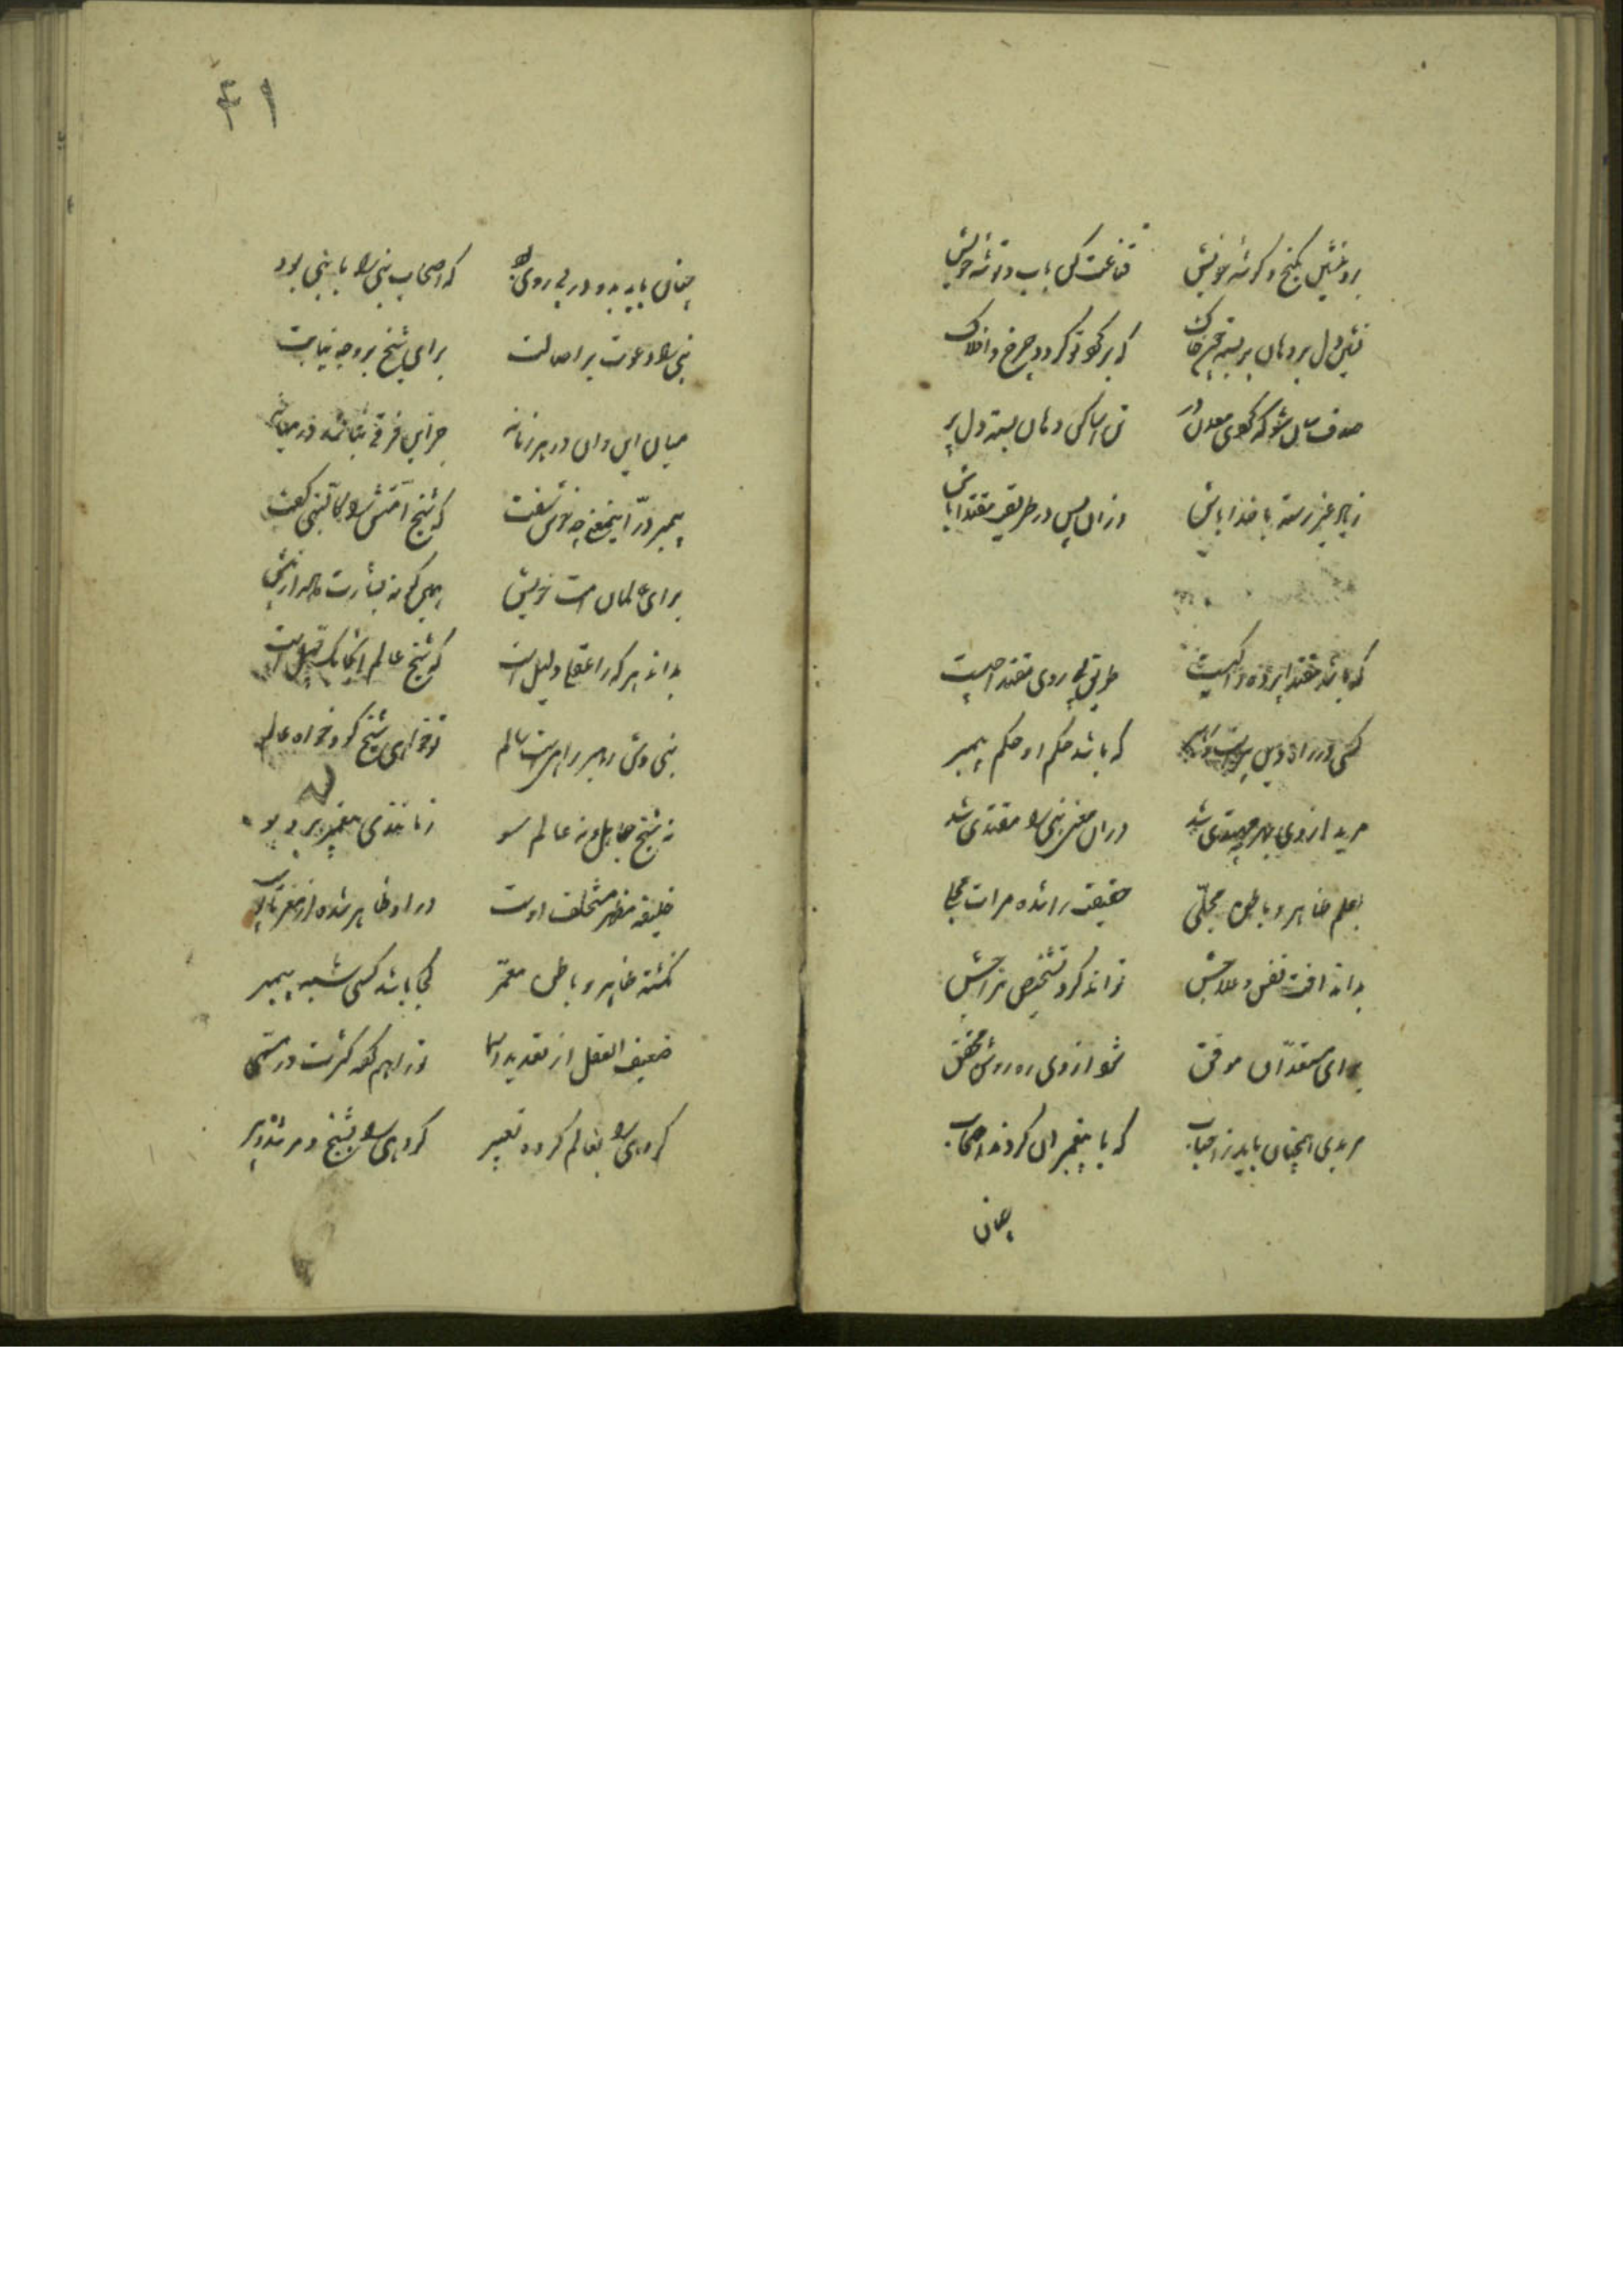 برو بنشین بکنج و گوشه خویش قناعت کن بآب و توشه خویش
نشین دل بر دهان بر بسته چون خاک که بر گرد تو گردد چرخ و افلاک
صدف سان شو که گوی معدن در تن آسا کن دهان بسته دل پر
ز یاد غیر رسته با خدا باش وزان پس در طریقت مقتدا باش
که باشد مقتدا پرورده کیست طریق پی روی مقتدا چیست
کسی در راه دین که باشد حکم او حکم پیمبر
مرید از وی بهر مهتدی شد در آن معنی نبی را مقتدی شد
بعلم ظاهر و باطن محلّی حقیقت را شده مرات مجلا
بداند آفت نفس و علاجش تواند کرد تشخیص مزاجش
برای مستعدّان موفق شود از وی ره روش محقق
مریدی همچنان باید ز احباب که با پیغمبران کردند اصحاب
چنان
۴۱
چنان باید بود در پی روی که اصحاب نبی را با نبی بود
نبی را دعوت بر اصالت برای شیخ بر وجه نیابت
میان این و آن در هر زمانه جز این فرقی نباشد در میانه
پیمبر درّ این معنی چه خوش سفت که شیخ امتش را کالنبی گفت
برای عالمان امت خویش همین گونه بشارت داد از پیش
بداند هر که را عقل و دلیل است که شیخ و عالم اینجا یک قبیل است
نبی وش رهبر راهست عالم تو خواهی شیخ گو و خواه عالم
نه شیخ جاهل و نه عالم سو
خلیفه مظهر مستخلف اوست در او ظاهر شده از مغز تا پوست
نگشته ظاهر و باطن معمّر کجا باشد کسی شبه پیمبر
ضعیف العقل از تعدید اسما
گروهی را بعالم کرده تعبیر گروهی را بشیخ و مرشد و پیر